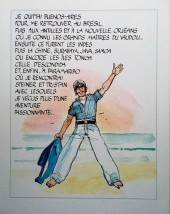 JE QUITTAI BUENOS-AIRES
POUR ME RETROUVER AU BRÉSIL.
PUIS AUX ANTILLES ET À LA NOUVELLE ORLÉANS
OÙ JE CONNUS LES GRANDS MAÎTRES DU VAUDOU...
ENSUITE CE FURENT LES INDES
PUIS LA CHINE, SURABAYA, JAVA, SAMOA
OU ENCORE LES ÎLES TONGA
CELLE D'ESCONDIDA
ET, ENFIN, À PARAMARIBO
OÙ JE RENCONTRAI
STEINER ET TRISTAN
AVEC LESQUELS
JE VÉCUS PLUS D'UNE
AVENTURE
PASSIONNANTE...